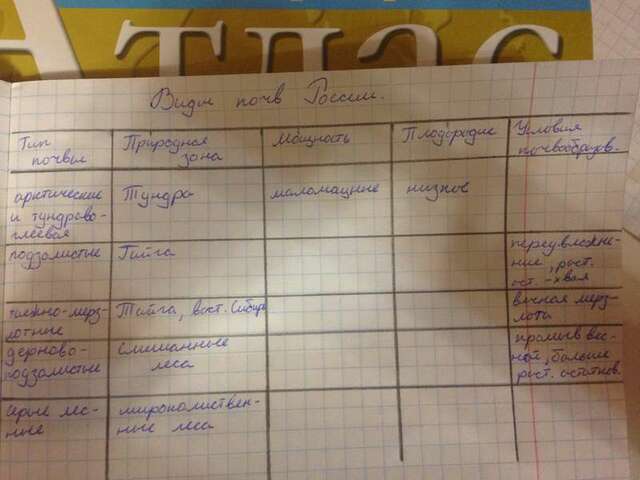 Атлас
Виды почв России.
Тип
почвы
Природная
зона
Мощность
Плодородие
Условия
почвообразов.
арктические
и тундрово-
глеевая
Тундра
маломощные
низкое
подзолистые
Тайга
переувлажне-
ние, раст.
ост. - хвоя
таежно-мерз-
лотные
Тайга, вост. Сибирь
вечная мерз-
лота
дерново-
подзолистые
Смешанные
леса
промыв вес-
ной, больше
раст. остатков.
серые лес-
ные
широколиствен-
ные леса